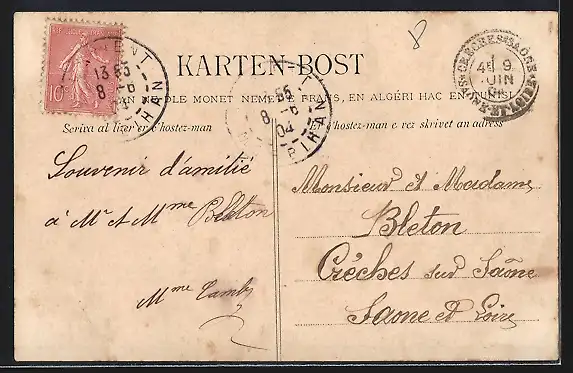 KARTEN-BOST
MONET NEMET E FRANS, EN ALGÉRI HAC EN TUNISI
Scriva al lizer er c'hostez-man
Er c'hostez-man e vez skrivet an adress
10c
13 35
8 -6
04
BIHAN
35
8 -6
04
BIHAN
CRÈCHES-S-SAÔNE
9
JUIN
SAÔNE-ET-LOIRE
8
Souvenir d'amitié
à Mr et Mme Bleton
Mme
Monsieur et Madame
Bleton
Crèches sur Saône
Saone et Loire